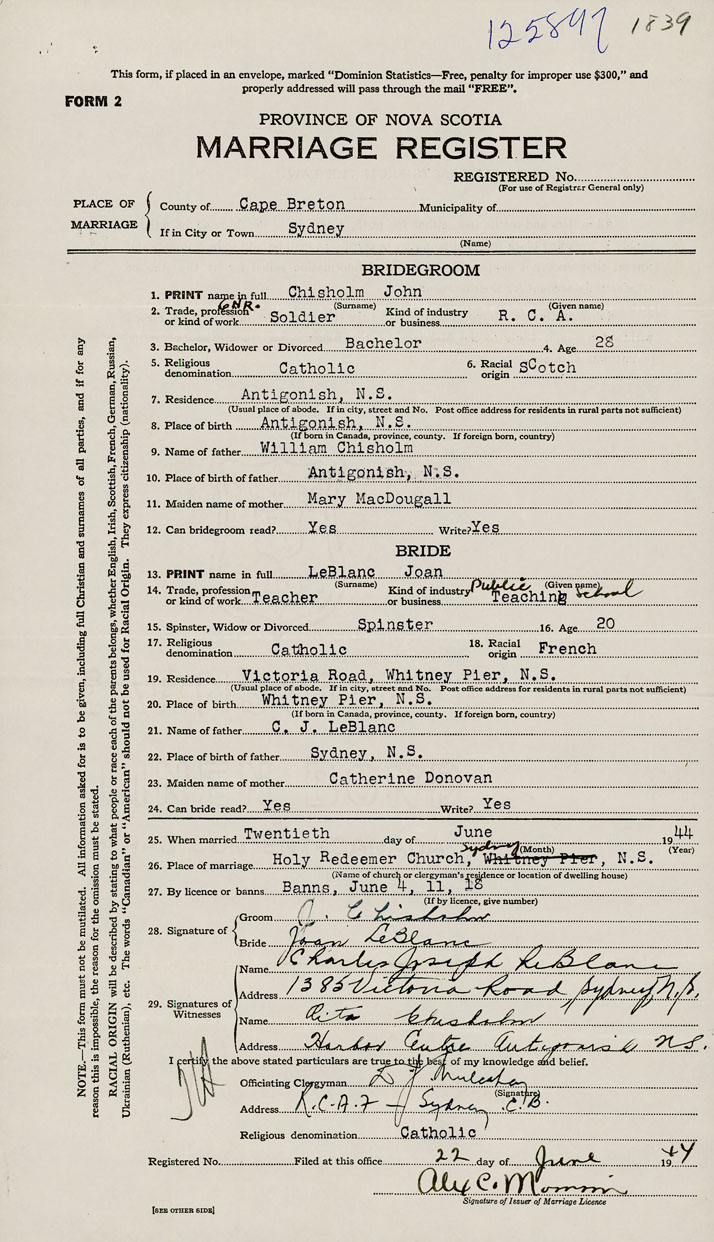 125897 1839
This form, if placed in an envelope, marked "Dominion Statistics—Free, penalty for improper use $300," and
properly addressed will pass through the mail "FREE".
FORM 2
PROVINCE OF NOVA SCOTIA
MARRIAGE REGISTER
REGISTERED No.
(For use of Registrar General only)
PLACE OF MARRIAGE
County of Cape Breton Municipality of
If in City or Town Sydney
(Name)
BRIDEGROOM
1. PRINT name in full Chisholm John
(Surname) (Given name)
GNR.
2. Trade, profession or kind of work Soldier Kind of industry or business R. C. A.
3. Bachelor, Widower or Divorced Bachelor 4. Age 28
5. Religious denomination Catholic 6. Racial origin Scotch
7. Residence Antigonish, N.S.
(Usual place of abode. If in city, street and No. Post office address for residents in rural parts not sufficient)
8. Place of birth Antigonish, N.S.
(If born in Canada, province, county. If foreign born, country)
9. Name of father William Chisholm
10. Place of birth of father Antigonish, N.S.
11. Maiden name of mother Mary MacDougall
12. Can bridegroom read? Yes Write? Yes
BRIDE
13. PRINT name in full LeBlanc Joan
(Surname) (Given name)
14. Trade, profession or kind of work Teacher Kind of industry or business Public Teaching School
15. Spinster, Widow or Divorced Spinster 16. Age 20
17. Religious denomination Catholic 18. Racial origin French
19. Residence Victoria Road, Whitney Pier, N.S.
(Usual place of abode. If in city, street and No. Post office address for residents in rural parts not sufficient)
20. Place of birth Whitney Pier, N.S.
(If born in Canada, province, county. If foreign born, country)
21. Name of father C. J. LeBlanc
22. Place of birth of father Sydney, N.S.
23. Maiden name of mother Catherine Donovan
24. Can bride read? Yes Write? Yes
25. When married Twentieth day of June 1944
(Month) (Year)
Sydney
26. Place of marriage Holy Redeemer Church, Whitney Pier, N.S.
(Name of church or clergyman's residence or location of dwelling house)
27. By licence or banns Banns, June 4, 11, 18
(If by licence, give number)
28. Signature of
Groom J. Chisholm
Bride Joan LeBlanc
29. Signatures of Witnesses
Name Charles Joseph LeBlanc
Address 1385 Victoria Road, Sydney N.S.
Name Rita Chisholm
Address Harbor Centre Antigonish N.S.
I certify the above stated particulars are true to the best of my knowledge and belief.
Officiating Clergyman D. J.
(Signature)
Address R.C.A.F - Sydney C.B.
Religious denomination Catholic
Registered No. Filed at this office 22 day of June 1944
Alex C.
Signature of Issuer of Marriage Licence
[SEE OTHER SIDE]
NOTE.—This form must not be mutilated. All information asked for is to be given, including full Christian and surnames of all parties, and if for any
reason this is impossible, the reason for the omission must be stated.
RACIAL ORIGIN will be described by stating to what people or race each of the parents belongs, whether English, Irish, Scottish, French, German, Russian,
Ukrainian (Ruthenian), etc. The words "Canadian" or "American" should not be used for Racial Origin. They express citizenship (nationality).